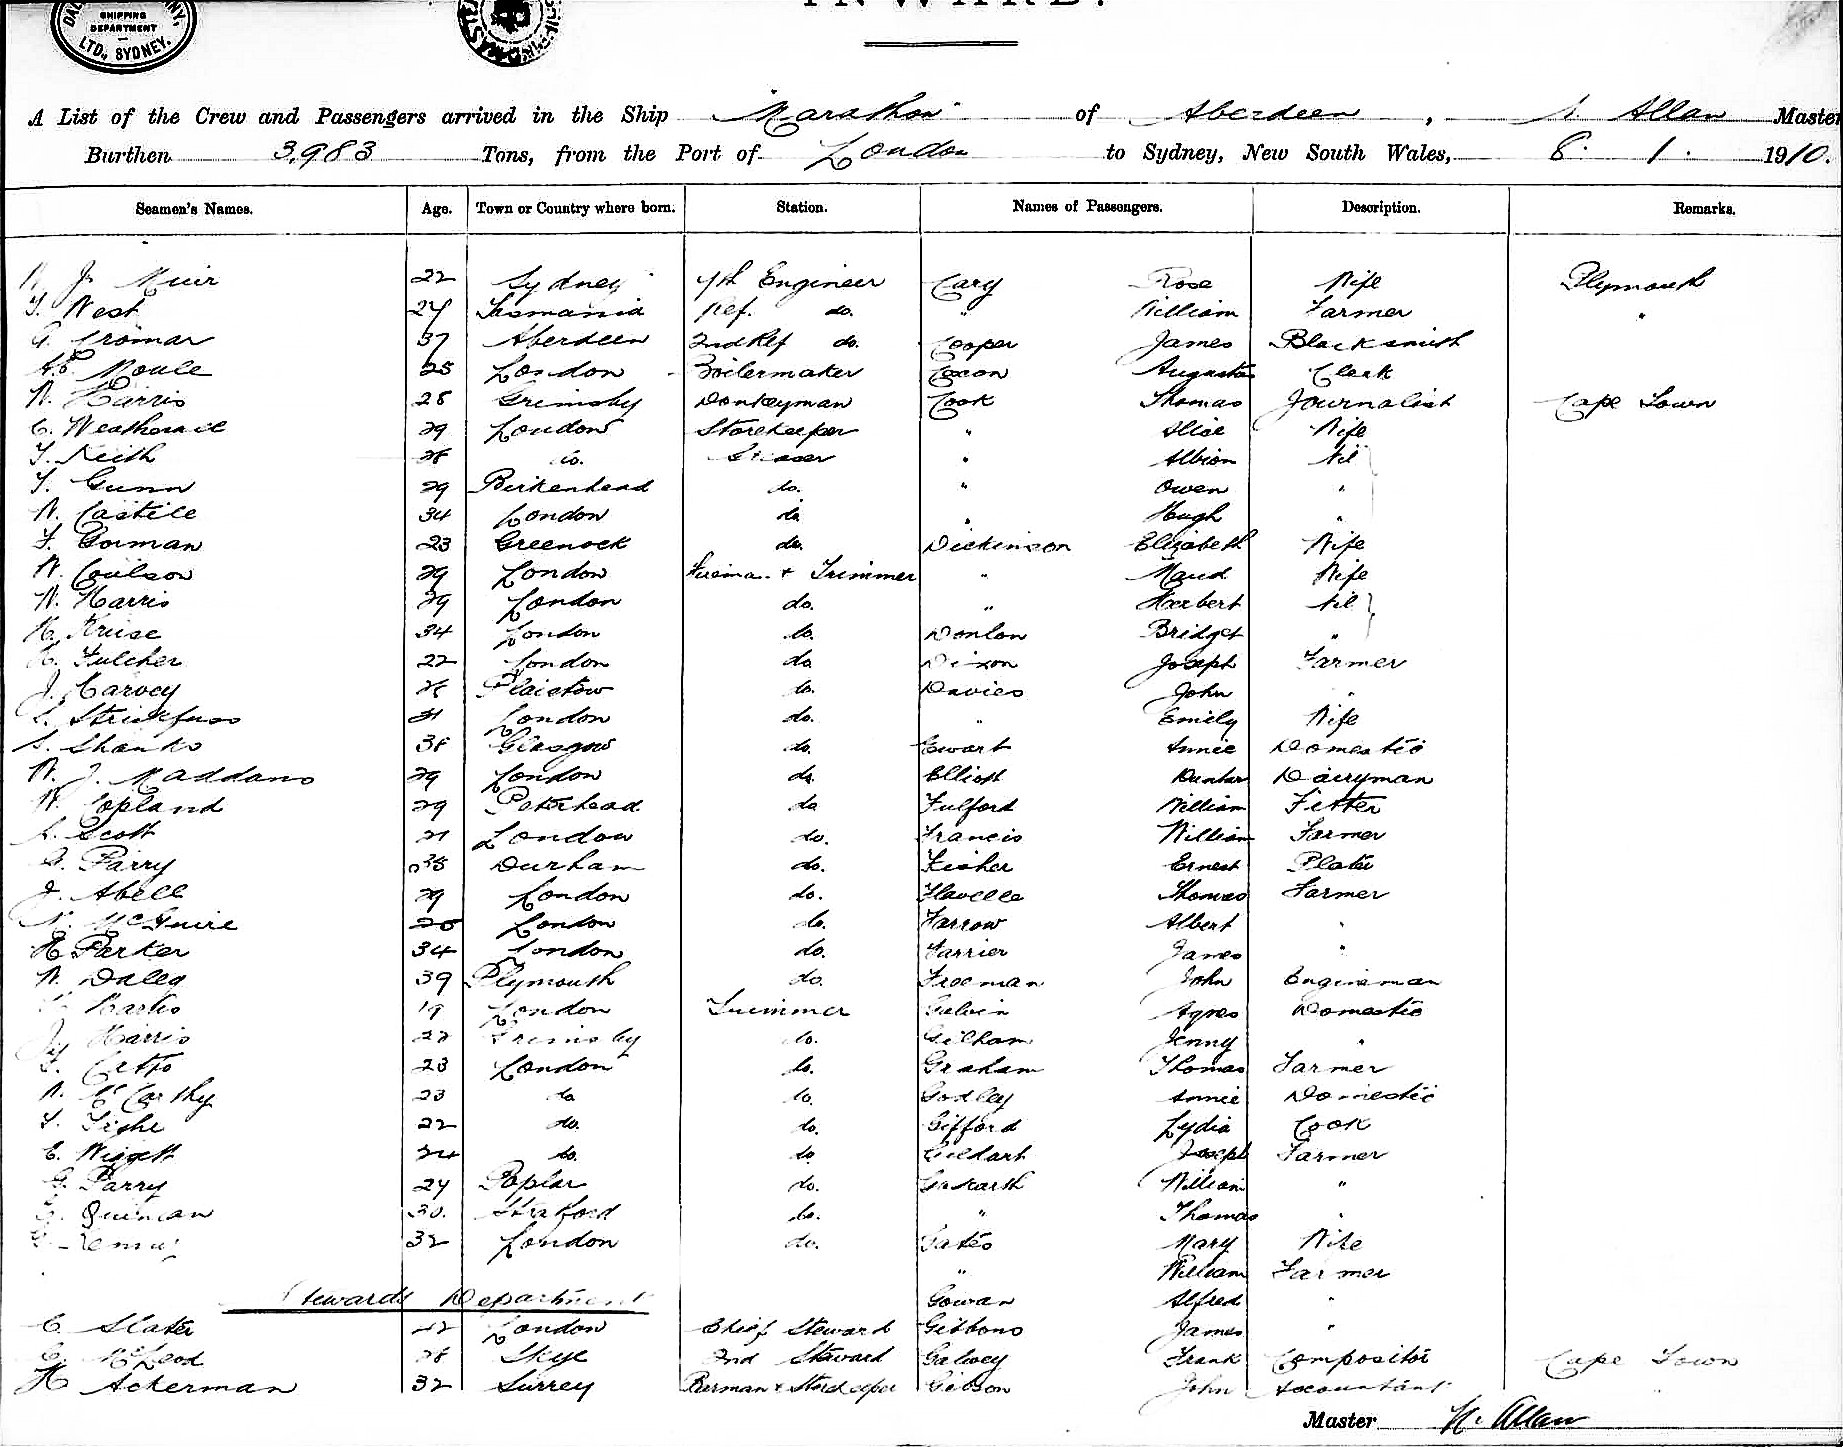 SHIPPING
DEPARTMENT
LTD., SYDNEY.
INWARD.
A List of the Crew and Passengers arrived in the Ship Marathon of Aberdeen, Allan Master
Burthen 3,983 Tons, from the Port of London to Sydney, New South Wales, 8. 1. 1910.
Seamen's Names. Age. Town or Country where born. Station. Names of Passengers. Description. Remarks.
J. Muir 22 Sydney 4th Engineer Cary Rose Wife Plymouth
T. West 24 Tasmania Ref. do. " William Farmer "
G. Cromar 37 Aberdeen 2nd Ref do. Cooper James Blacksmith
Moule 25 London Boilermaker Cocon Augustus Clerk
W. Harris 28 Grimsby Donkeyman Cook Thomas Journalist Cape Town
C. London Storekeeper " Alice Wife
T. Keith do. Greaser " Albion Nil
T. Gunn 29 Birkenhead do. " Owen "
W. Castile 34 London do " Hugh "
F. Gorman 23 Greenock do. Dickinson Elizabeth Wife
W. Coulson 29 London Firema. + Trimmer " Maud Wife
W. Harris 29 London do. " Herbert Nil
H. Kruse 34 London do. Donlon Bridget "
Fulcher 22 London do Dixon Joseph Farmer
J. Harvey Plaistow do. Davies John "
Strickfuss London do. " Emily Wife
S. Shanks 38 Glasgow do. Ewart Annie Domestic
W. J. Maddans 29 London do. Elliott Dunbar Dairyman
W. Copland 29 Peterhead do Fulford William Fitter
Scott 21 London do. Francis William Farmer
Parry 35 Durham do. Fisher Ernest Plater
J. Abell 29 London do. Flavelle Thomas Farmer
McGuire London do. Farrow Albert "
H Parker 34 London do. Farrier James "
W. Daley 39 Plymouth do. Freeman John Engineman
19 London Trimmer Galvin Agnes Domestic
Harris 22 Grimsby do. Gilham Jenny "
23 London do. Graham Thomas Farmer
W. McCarthy 23 do do. Godley Annie Domestic
T. Tighe 22 do. do. Gifford Lydia Cook
C. Wiggett 24 do. do. Geldart Joseph Farmer
G. Parry 24 Poplar do. William "
Quinlan 30. Stratford do. " Thomas "
32 London do. Gates Mary Wife
" William Farmer
Stewards Department Gowan Alfred "
C. Slater London Chief Steward Gibbons James "
McLeod 28 Skye 2nd Steward Galvey Frank Compositor Cape Town
H Ackerman 32 Surrey Barman + Storekeeper Gibson John Accountant
Master Allan